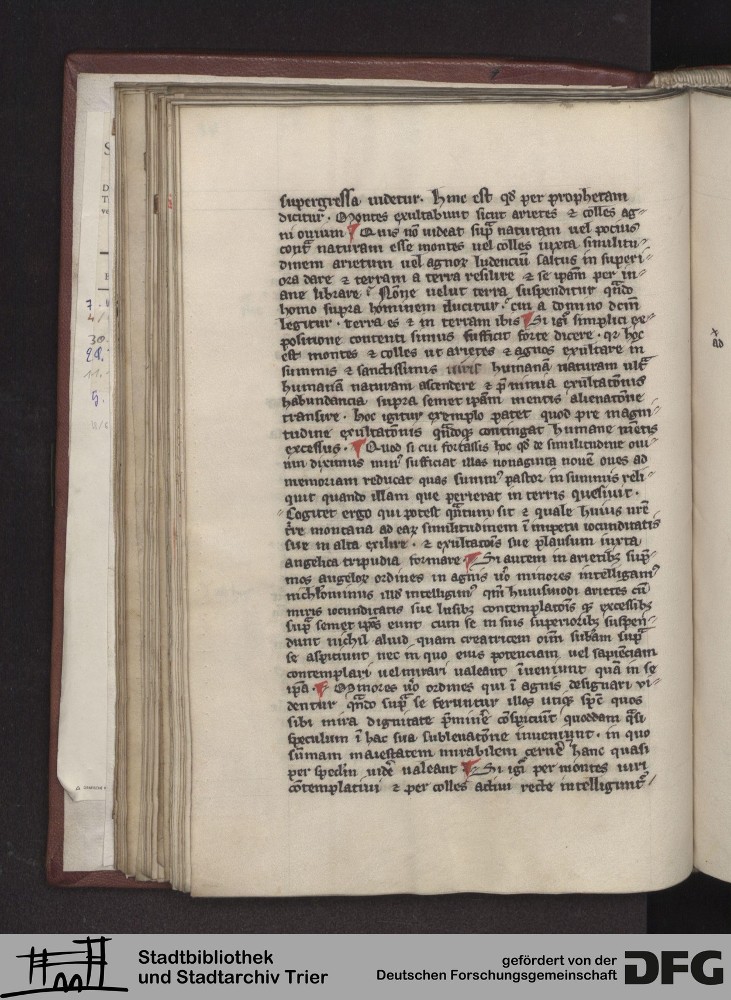 supergressa uidetur. Hinc est qď per prophetam
dicitur. Montes exultabunt sicut arietes ⁊ colles ag-
ni ouium Quis nō uideat sup̄ naturam uel pocius
cont̄ naturam esse montes uel colles iuxta similitu-
dinem arietum uel agnoꝝ ludenciū saltus in superi-
ora dare ⁊ terram a terra resilire ⁊ se ip̄am per in-
ane librare ī Nōne uelut terra suspenditur qn̄do
homo supra hominem ducitur. cui a domino dc̄m
legitur. terra es ⁊ in terram ibis Si igī simplici ex-
positione contenti simus sufficit forte dicere. qꝛ hoc
est montes ⁊ colles ut arietes ⁊ agnos exultare in
summis ⁊ sanctissimis uiris humanā naturam ult̄
humanā naturam ascendere ⁊ p̄ nimia exultatōnis
habundancia supra semet ipam mentis alienatōne
transire. hoc igitur exemplo patet quod pre magni-
tudine exultatōnis qn̄doqꝫ contingat humane mētis
excessus. Quod si cui fortassis hoc qď de similitudine oui-
um diximus min⁹ sufficiat illas nonaginta nouē oues ad
memoriam reducat quas summ⁹ pastor in summis reli-
quit quando illam que perierat in terris quesiuit.
Cogitet ergo qui potest qn̄tum sit ⁊ quale huius nr̄e
tr̄re montana ad eaꝝ similitudinem ī impetu iocunditatis
sue in alta exilire. ⁊ exultatōis sue plausum iuxta
angelica tripudia formare Si autem in arietibꝫ sup̄-
mos angeloꝝ ordines in agnis ūo minores intelligam⁹
nichlominus illď intelligim⁹ qm̄ huiusmodi arietes cū
miris iocunditatis sue lusibꝫ contemplatōis qꝫ excessibꝫ
sup̄ semet ip̄os eunt cum se in suis superioribꝫ suspen-
dunt nichil aliud quam creatricem oīm subām sup̄
se aspiciunt nec in quo eius potenciam uel sapiēciam
contemplari uel mirari ualeant īueniunt quā in se
ip̄a. Minores ūo ordines qui ī agnis designari vi-
dentur qn̄do sup̄ se feruntur illos utiqꝫ sp̄c quos
sibi mira dignitate p̄minē cōspiciūt quoddam q̄si
speculum ī hac sua subleuatōne inueniunt. in quo
sūmam maiestatem mirabilem cernē hanc quasi
per spec̄lm uidē ualeant Si igī per montes uiri
cōtemplatiui ⁊ per colles actiui recte intelligunt᷑
x
ad
Stadtbibliothek
und Stadtarchiv Trier
gefördert von der
Deutschen Forschungsgemeinschaft
DFG